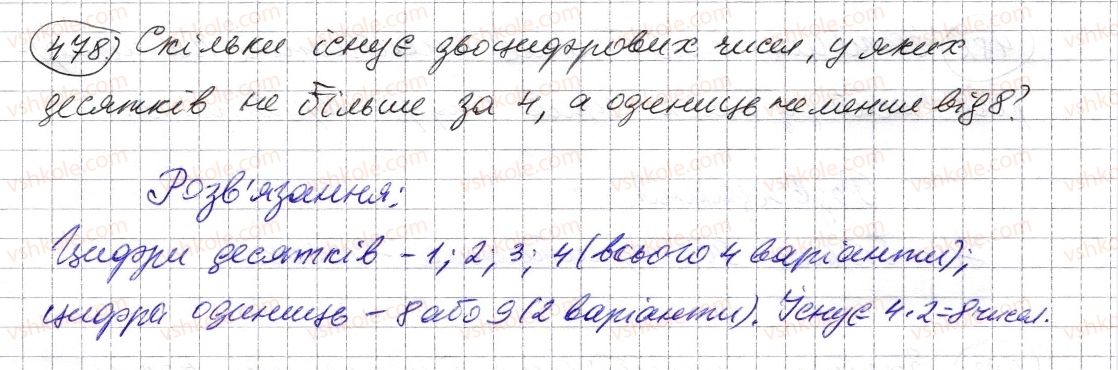 478) Скільки існує двоцифрових чисел, у яких
десятків не більше за 4, а одиниць не менше від 8?
Розв'язання:
Цифри десятків – 1; 2; 3; 4 (всього 4 варіанти);
цифра одиниць – 8 або 9 (2 варіанти). Існує 4·2=8 чисел.